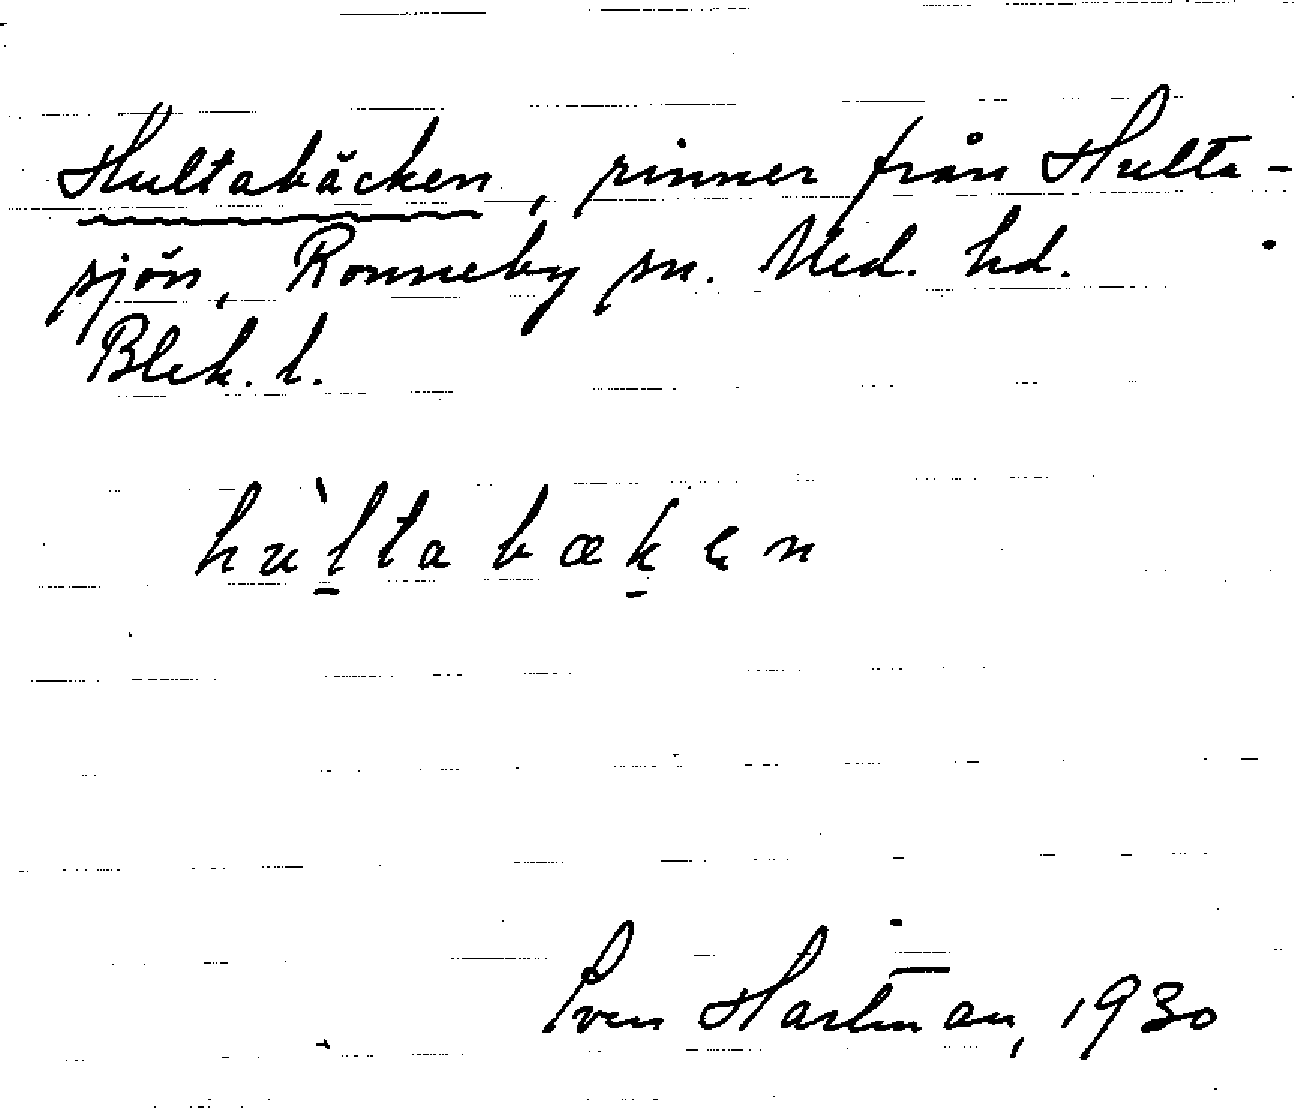 Hultabäcken, rinner från Hulta-
sjön, Ronneby sn. Med. hd.
Blek. l.
hu̇̀l̠tabæk̠ən
Sven Hartman, 1930